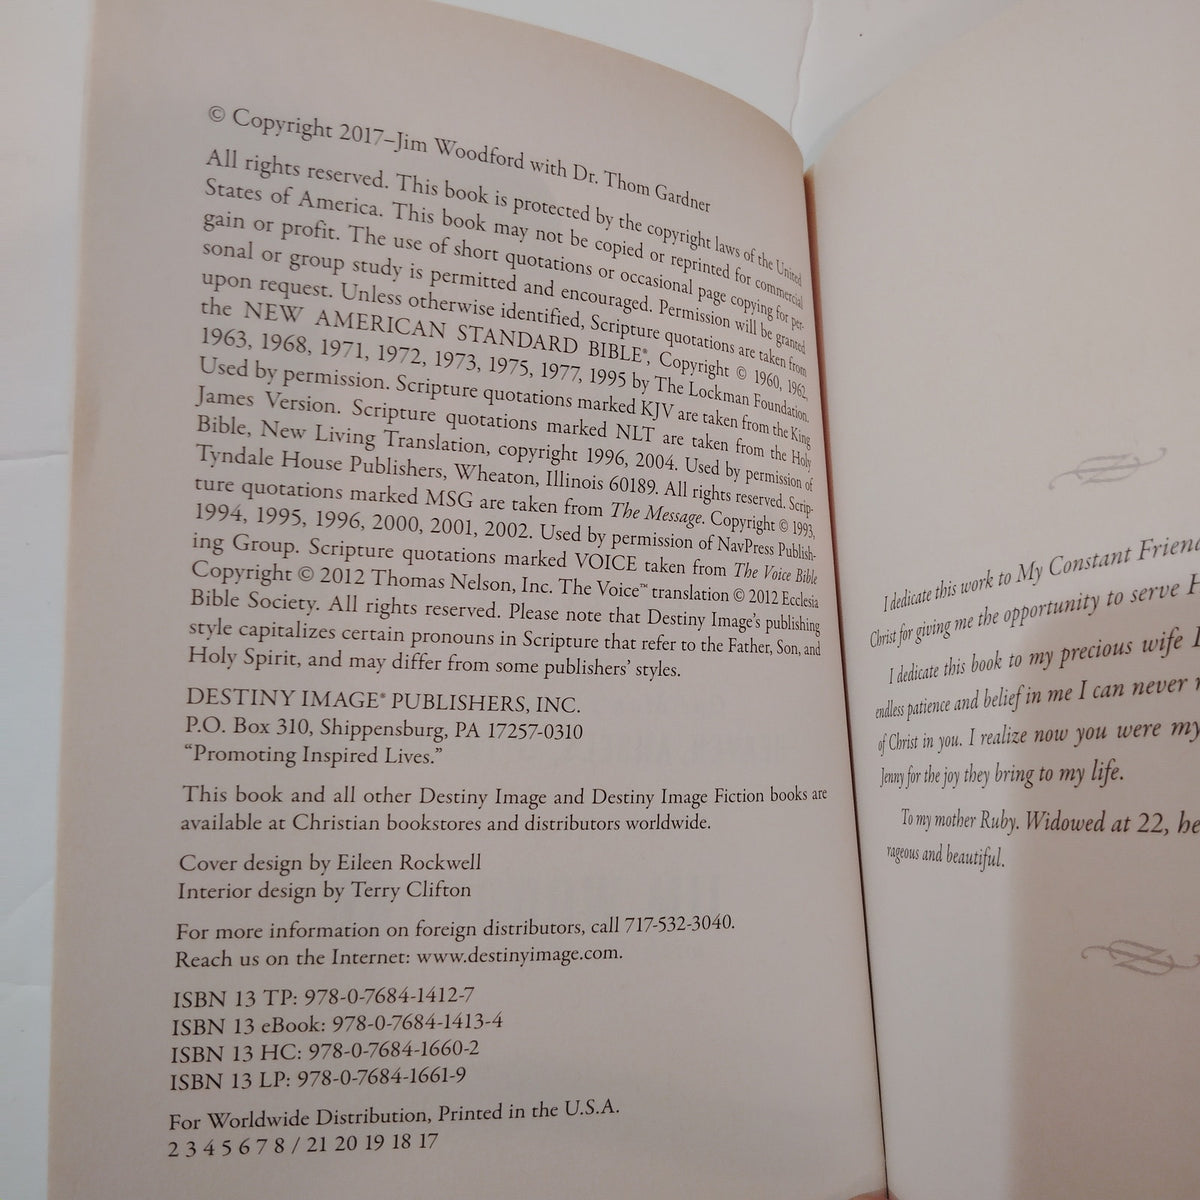 © Copyright 2017–Jim Woodford with Dr. Thom Gardner
All rights reserved. This book is protected by the copyright laws of the United
States of America. This book may not be copied or reprinted for commercial
gain or profit. The use of short quotations or occasional page copying for per-
sonal or group study is permitted and encouraged. Permission will be granted
upon request. Unless otherwise identified, Scripture quotations are taken from
the NEW AMERICAN STANDARD BIBLE®, Copyright © 1960, 1962,
1963, 1968, 1971, 1972, 1973, 1975, 1977, 1995 by The Lockman Foundation.
Used by permission. Scripture quotations marked KJV are taken from the King
James Version. Scripture quotations marked NLT are taken from the Holy
Bible, New Living Translation, copyright 1996, 2004. Used by permission of
Tyndale House Publishers, Wheaton, Illinois 60189. All rights reserved. Scrip-
ture quotations marked MSG are taken from The Message. Copyright © 1993,
1994, 1995, 1996, 2000, 2001, 2002. Used by permission of NavPress Publish-
ing Group. Scripture quotations marked VOICE taken from The Voice Bible
Copyright © 2012 Thomas Nelson, Inc. The Voice™ translation © 2012 Ecclesia
Bible Society. All rights reserved. Please note that Destiny Image's publishing
style capitalizes certain pronouns in Scripture that refer to the Father, Son, and
Holy Spirit, and may differ from some publishers' styles.
DESTINY IMAGE® PUBLISHERS, INC.
P.O. Box 310, Shippensburg, PA 17257-0310
“Promoting Inspired Lives.”
This book and all other Destiny Image and Destiny Image Fiction books are
available at Christian bookstores and distributors worldwide.
Cover design by Eileen Rockwell
Interior design by Terry Clifton
For more information on foreign distributors, call 717-532-3040.
Reach us on the Internet: www.destinyimage.com.
ISBN 13 TP: 978-0-7684-1412-7
ISBN 13 eBook: 978-0-7684-1413-4
ISBN 13 HC: 978-0-7684-1660-2
ISBN 13 LP: 978-0-7684-1661-9
For Worldwide Distribution, Printed in the U.S.A.
2 3 4 5 6 7 8 / 21 20 19 18 17
I dedicate this work to My Constant Friend
Christ for giving me the opportunity to serve H
I dedicate this book to my precious wife
endless patience and belief in me I can never
of Christ in you. I realize now you were my
Jenny for the joy they bring to my life.
To my mother Ruby. Widowed at 22, he
rageous and beautiful.